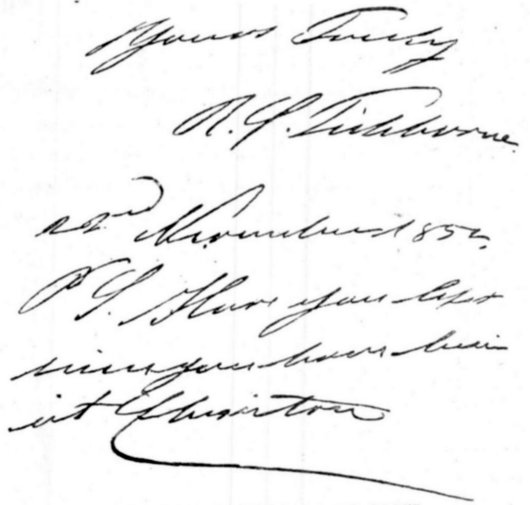 Yours Truly
R. C. Tichborne
22nd November 1852
P.S. Have you
since you have been
at